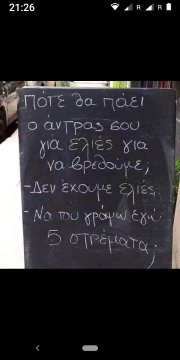 21:26
Πότε θα πάει
ο άντρας σου
για ελιές για
να βρεθούμε;
-Δεν έχουμε ελιές.
-Να του γράψω εγώ
5 στρέματα;